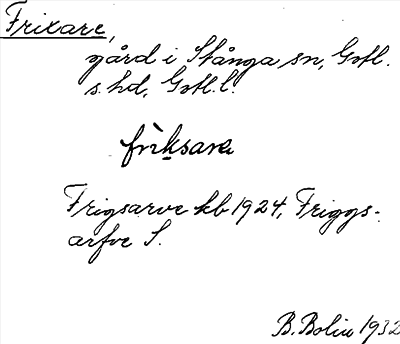 Frixare,
gård i Stånga sn, Gotl.
s. hd, Gotl. l.
frìksara
Frigsarve kb 1924, Friggs-
arfve S.
B. Bolin 1932